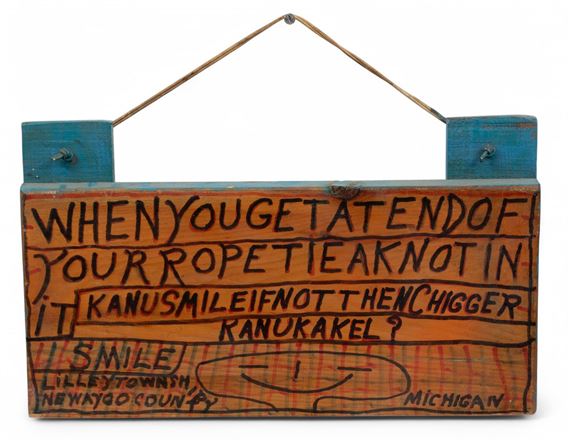 WHENYOUGETATENDOF
YOURROPETIEAKNOTIN
iT KANUSMILEIFNOTTHENCHIGGER
KANUKAKEL?
SMILE
LiLLEYTOWNSH,P
NEWAYGOCOUNTY MICHIGAN